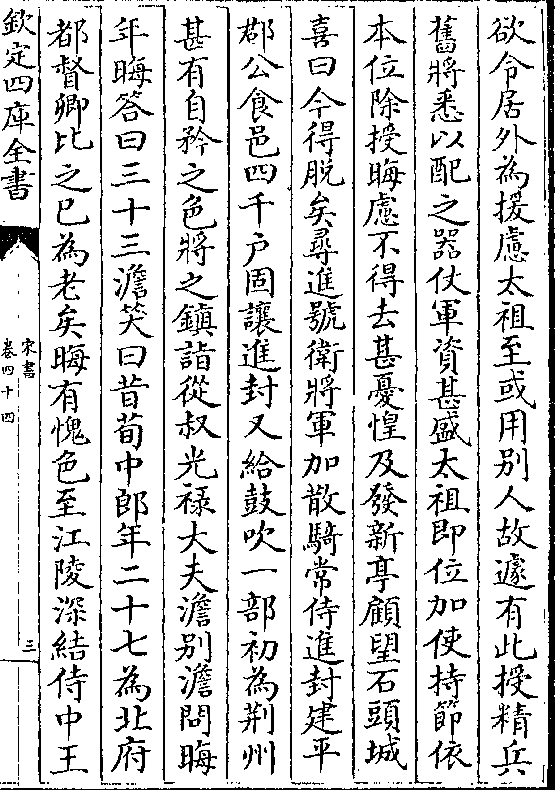 欲令居外為援慮太祖至或用别人故遽有此授精兵
舊將悉以配之器仗軍資甚盛太祖即位加使持節依
本位除授晦慮不得去甚憂惶及發新亭顧望石頭城
喜曰今得脫矣尋進號衛將軍加散騎常侍進封建平
郡公食邑四千户固讓進封又給鼓吹一部初為荆州
甚有自矜之色將之鎮詣從叔光禄大夫澹别澹問晦
年晦答曰三十三澹笑曰昔荀中郎年二十七為北府
都督卿比之已為老矣晦有愧色至江陵深結侍中王
欽定四庫全書
宋書
卷四十四
三